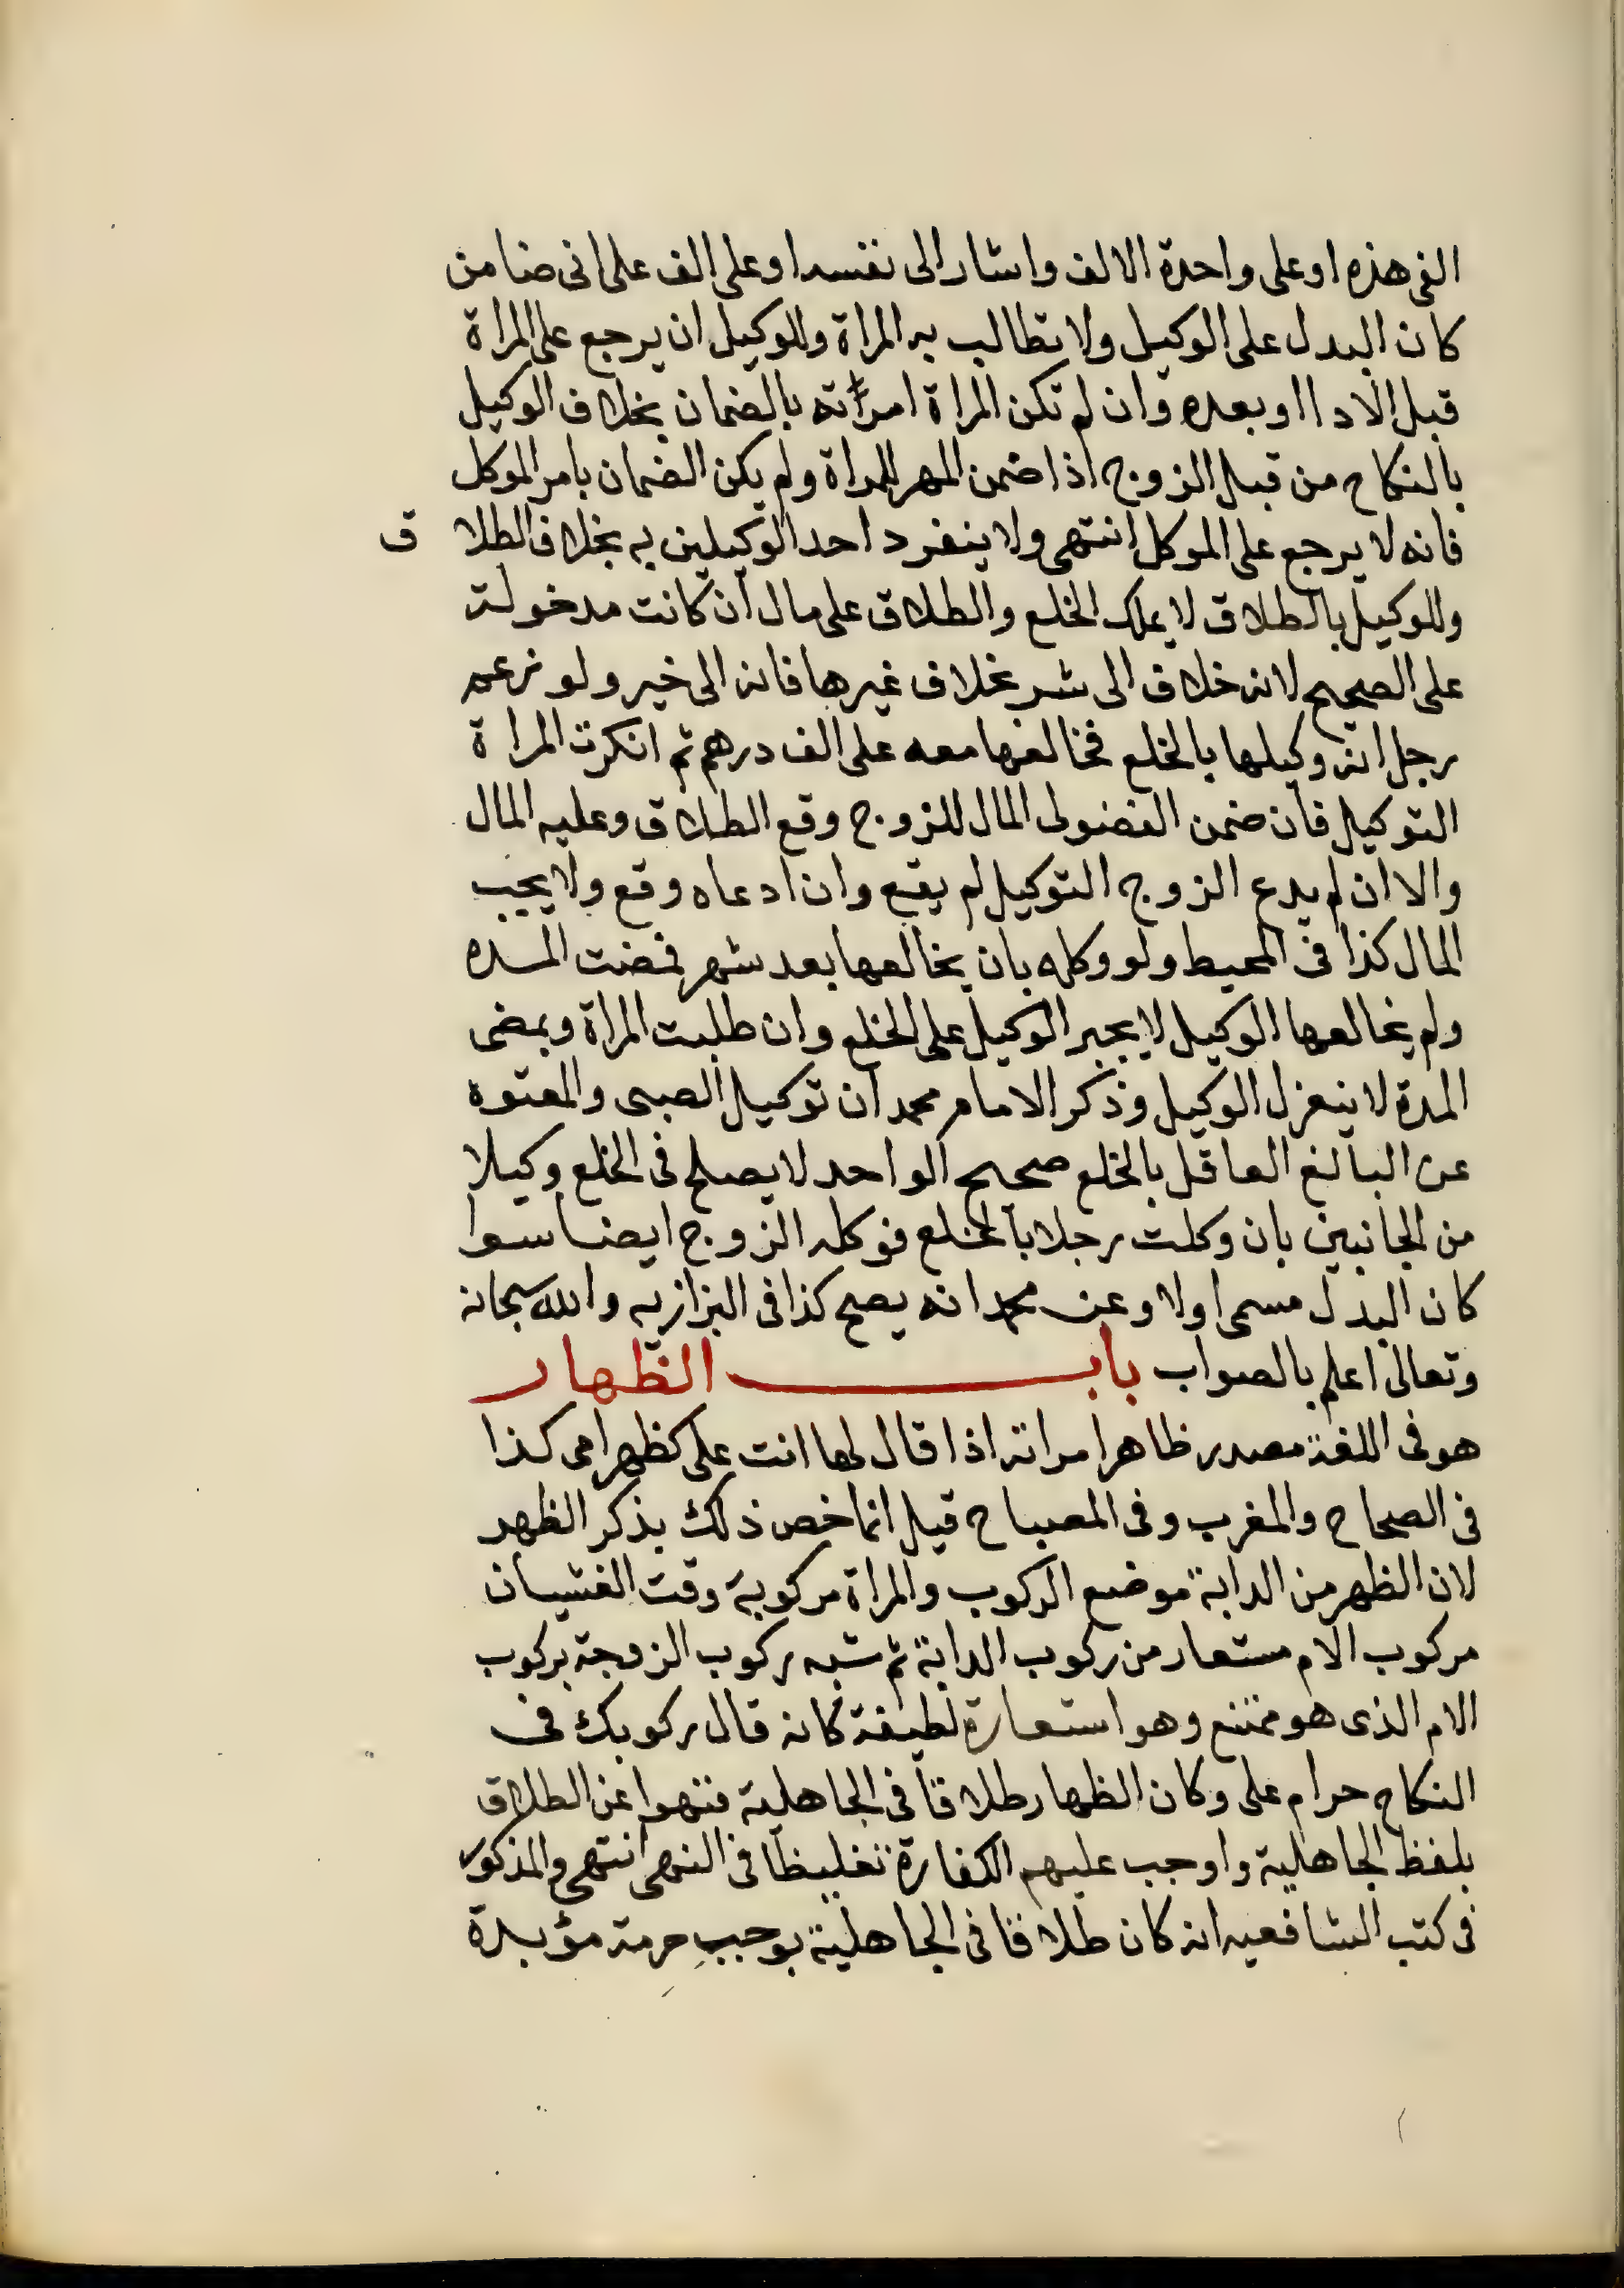 الفى هذه او على واحدة الالف واشار الى نفسه او على الف على انى ضامن
كان البدل على الوكيل ولا تطالب به المراة وللوكيل ان يرجع على المراة
قبل الادا او بعده وان لم تكن المراة امرته بالضمان بخلاف الوكيل
بالنكاح من قبل الزوج اذا ضمن المهر للمراة ولم يكن الضمان بامر الموكل
فانه لا يرجع على الموكل انتهى ولا ينفرد احد الوكيلين به بخلاف الطلاق
وللوكيل بالطلاق لا يملك الخلع والطلاق على مال ان كانت مدخولة
على الصحيح لانه خلاف الى شر بخلاف غيرها فانه الى خير ولو زعم
رجل انه وكيلها بالخلع فخالعها معه على الف درهم ثم انكرت المراة
التوكيل فان ضمن الفضولى المال للزوج وقع الطلاق وعليه المال
والا ان لم يدع الزوج التوكيل لم يقع وان ادعاه وقع ولا يجب
المال كذا فى المحيط ولو وكله بان يخالعها بعد شهر فمضت المده
ولم يخالعها الوكيل لا يجبر الوكيل على الخلع وان طلبت المراة وبمضى
المدة لا ينعزل الوكيل وذكر الامام محمد ان توكيل الصبى والمعتوه
عن البالغ العاقل بالخلع صحيح الواحد لا يصلح فى الخلع وكيلا
من الجانبين بان وكلت رجلا بالخلع فوكله الزوج ايضا سوا
كان البدل مسمى اولا وعن محمد انه يصح كذا فى البزازيه والله سبحانه
وتعالى اعلم بالصواب باب الظهار
هو فى اللغة مصدر ظاهر امراته اذا قال لها انت على كظهر امى كذا
فى الصحاح والمغرب وفى المصباح قيل انما خص ذلك بذكر الظهر
لان الظهر من الدابة موضع الركوب والمراة مركوبة وقت الغشيان
مركوب الام مستعار من ركوب الدابة ثم شبه ركوب الزوجة بركوب
الام الذى هو ممتنع وهو استعارة لطيفة كانه قال ركوبك فى
النكاح حرام على وكان الظهار طلاقا فى الجاهلية فنهوا عن الطلاق
بلفظ الجاهلية واوجب عليهم الكفارة تغليظا فى النهى انتهى والمذكور
فى كتب الشافعيه انه كان طلاقا فى الجاهلية يوجب حرمة مؤبدة